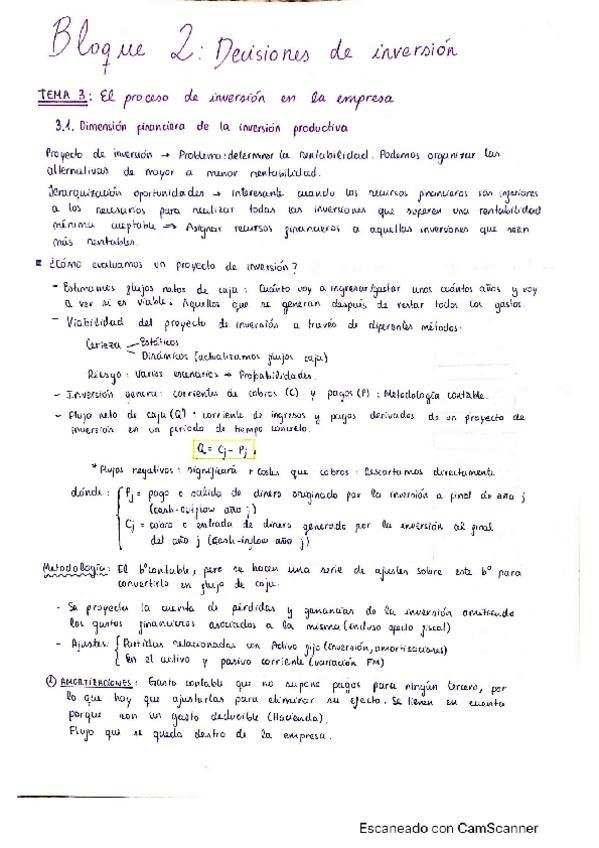 Bloque 2: Decisiones de inversión
TEMA 3: El proceso de inversión en la empresa
3.1. Dimensión financiera de la inversión productiva
Proyecto de inversión → Problema: determinar la rentabilidad. Podemos organizar las
alternativas de mayor a menor rentabilidad.
Jerarquización oportunidades → Interesante cuando los recursos financieros son inferiores
a los necesarios para realizar todas las inversiones que superen una rentabilidad
mínima aceptable ⇒ Asignar recursos financieros a aquellas inversiones que sean
más rentables.
¿Cómo evaluamos un proyecto de inversión?
- Estimamos flujos netos de caja: Cuánto voy a ingresar/gastar unos cuántos años y voy
a ver si es viable. Aquellos que se generan después de restar todos los gastos.
- Viabilidad del proyecto de inversión a través de diferentes métodos:
Certeza - Estáticos
Dinámicos (actualizamos flujos caja)
Riesgo: Varios escenarios → Probabilidades.
- Inversión genera: corrientes de cobros (C) y pagos (P): Metodología contable.
- Flujo neto de caja (Q): corriente de ingresos y pagos derivados de un proyecto de
inversión en un período de tiempo concreto.
Q = Cj - Pj
* Flujos negativos: significará + costes que cobros: Descartamos directamente
dónde: { Pj = pago o salida de dinero originado por la inversión a final de año j
(cash-outflow año j)
Cj = cobro o entrada de dinero generado por la inversión al final
del año j (cash-inflow año j)
Metodología: El bº contable, pero se hacen una serie de ajustes sobre este bº para
convertirlo en flujo de caja.
- Se proyecta la cuenta de pérdidas y ganancias de la inversión omitiendo
los gastos financieros asociados a la misma (incluso efecto fiscal)
- Ajustes: { Partidas relacionadas con Activo fijo (inversión, amortizaciones)
En el activo y pasivo corriente (variación FM)
① AMORTIZACIONES: Gasto contable que no supone pagos para ningún tercero, por
lo que hay que ajustarlas para eliminar su efecto. Se tienen en cuenta
porque son un gasto deducible (Hacienda).
Flujo que se queda dentro de la empresa.
Escaneado con CamScanner